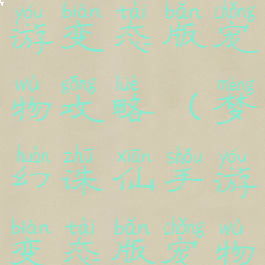 yóu biàn tài bǎn chǒng
游变态版宠
wù gōng lüè mèng
物攻略(梦
huàn zhū xiān shǒu yóu
幻诛仙手游
biàn tài bǎn chǒng wù
变态版宠物